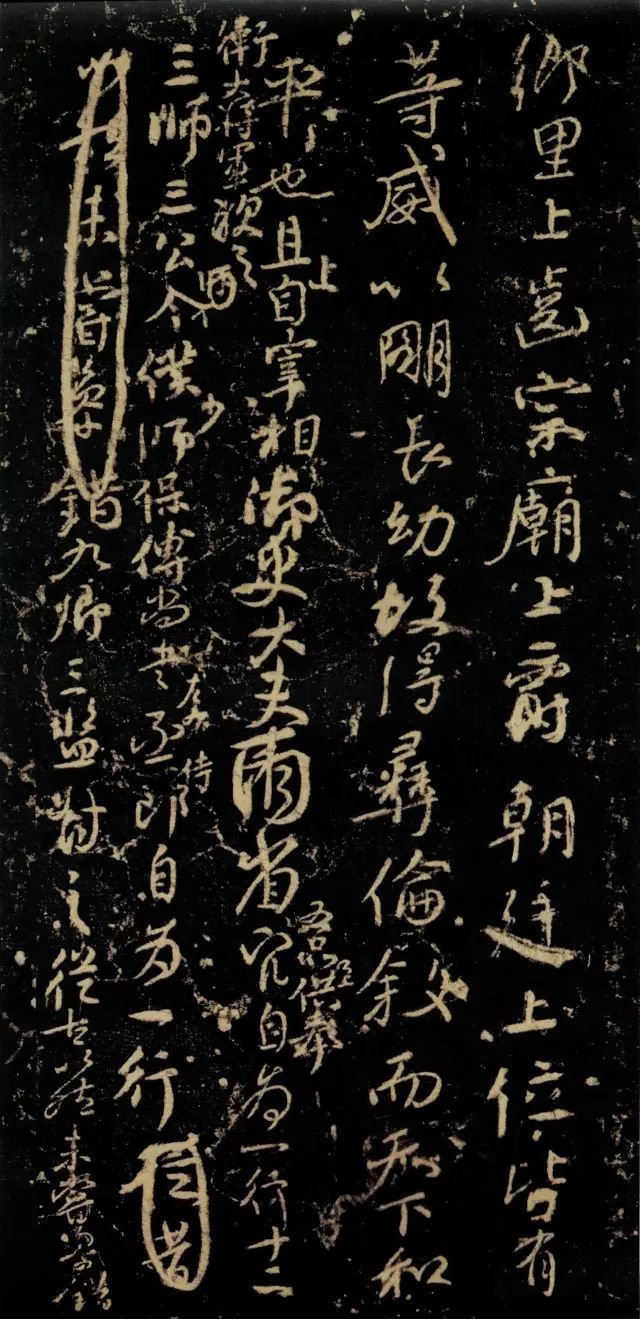 鄉里上齒宗廟上爵朝廷上位皆有
等威以明長幼故得彝倫敘而天下和
平也且上自宰相御史大夫兩省五品以上供奉官自為一行十二
衛大將軍次之三師三公令僕少師保傅尚書左右丞侍郎自為一行
九卿三監對之從古以然未嘗參錯